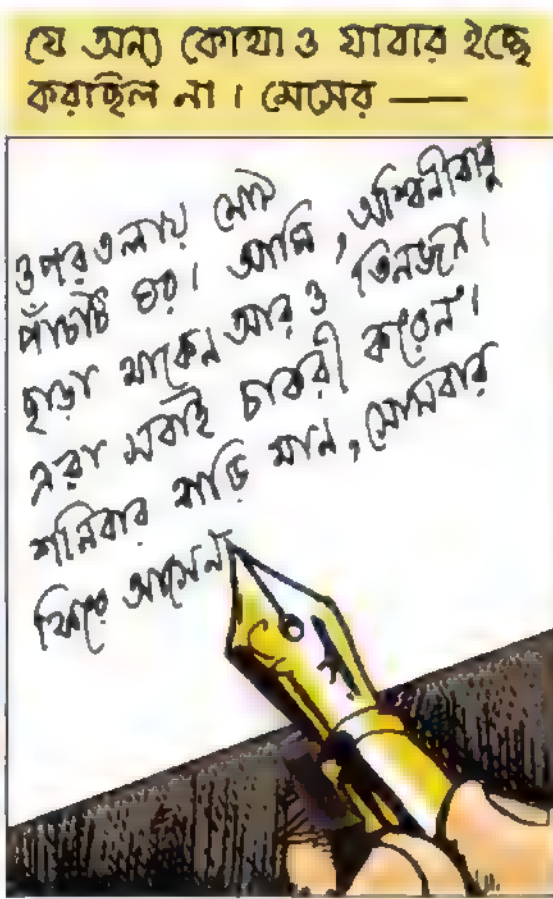 যে অন্য কোথাও যাবার ইচ্ছে
করছিল না। মেসের —
ওপরতলায় মোট
পাঁচটি ঘর। আমি, অশ্বিনীবাবু
ছাড়া থাকেন আরও তিনজন।
এরা সবাই চাকরী করেন।
শনিবার বাড়ি যান, সোমবার
ফিরে আসেন